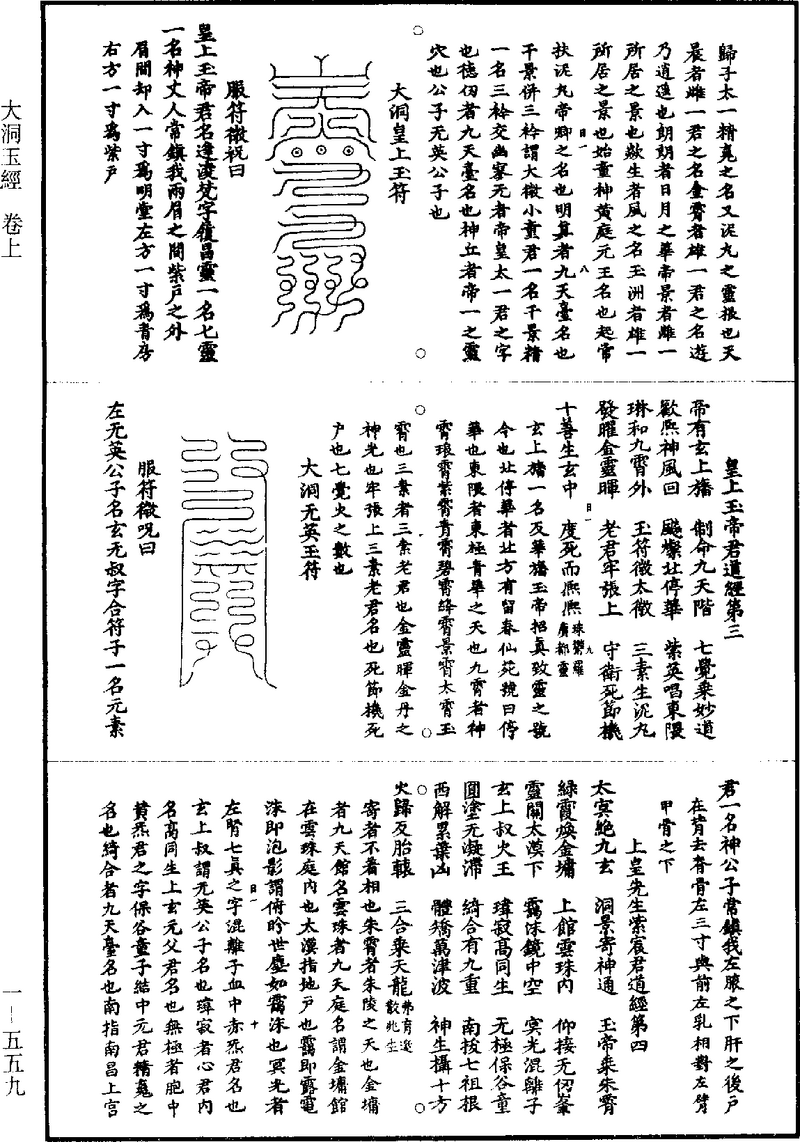 大洞玉經 卷上
一—五五九
歸子太一精魂之名又泥丸之靈根也天
晨者雌一君之名金霄者雄一君之名遊
乃逍遙也朗朗者日月之華帝景者雌一
所居之景也歘生者風之名玉洲者雄一
所居之景也始童神黃庭元王名也起常
扶泥丸帝卿之名也明真者九天臺名也
千景併三衿謂大微小童君一名千景精
一名三衿交幽寥无者帝皇太一君之字
也德仞者九天臺名也神丘者帝一之靈
穴也公子无英公子也
大洞皇上玉符
服符微祝曰
皇上玉帝君名逢凌梵字履昌靈一名七靈
一名神丈人常鎮我兩眉之間紫戶之外
眉間却入一寸爲明堂左方一寸爲青房
右方一寸爲紫戶
皇上玉帝君道經第三
帝有玄上旛 制命九天階 七覺乘妙道
歡熙神風回 飈欝北停華 紫英唱東隈
琳和九霄外 玉符徵太微 三素生泥丸
發曜金靈暉 老君牢張上 守衛死節機
十善生玄中 度死而熙熙 珠欝羅廣都靈
玄上旛一名反華旛玉帝招真致靈之號
令也北停華者北方有留春仙苑號曰停
華也東隈者東極青華之天也九霄者神
霄琅霄紫霄青霄碧霄絳霄景霄太霄玉
霄也三素者三素老君也金靈暉金丹之
神光也牢張上三素老君名也死節機死
戶也七覺火之數也
大洞无英玉符
服符微呪曰
左无英公子名玄无叔字合符子一名元素
君一名神公子常鎮我左腋之下肝之後戶
在背去脊骨左三寸與前左乳相對左臂
甲骨之下
上皇先生紫宸君道經第四
太冥絕九玄 洞景寄神通 玉帝乘朱霄
綠霞煥金墉 上館雲珠內 仰接无仞峯
靈關太漠下 靄沫鏡中空 冥光混離子
玄上叔火王 瑋寂高同生 无極保谷童
圓塗无凝滯 綺合有九重 南拔七祖根
西解累葉凶 體矯萬津波 神生攝十方
火歸反胎轅 三合乘天龍
寄者不著相也朱霄者朱陵之天也金墉
者九天館名雲珠者九天庭名謂金墉館
在雲珠庭內也太漠指地戶也靄即露電
沫即泡影謂俯昑世塵如靄沫也冥光者
左腎七真之字混離子血中赤炁君名也
玄上叔謂无英公子名也瑋寂者心君內
名高同生上玄元父君名也無極者胞中
黃炁君之字保谷童子結中元君精魂之
名也綺合者九天臺名也南指南昌上宮